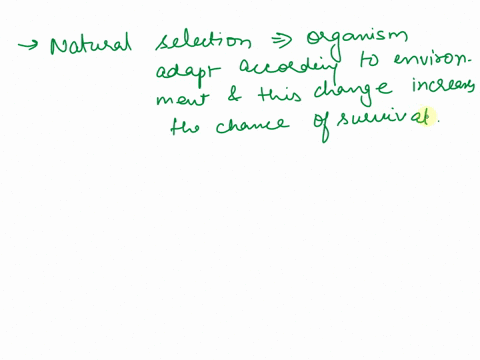 → Natural selection ⇒ organism
adapt according to environ-
ment & this change increases
the chance of survival.